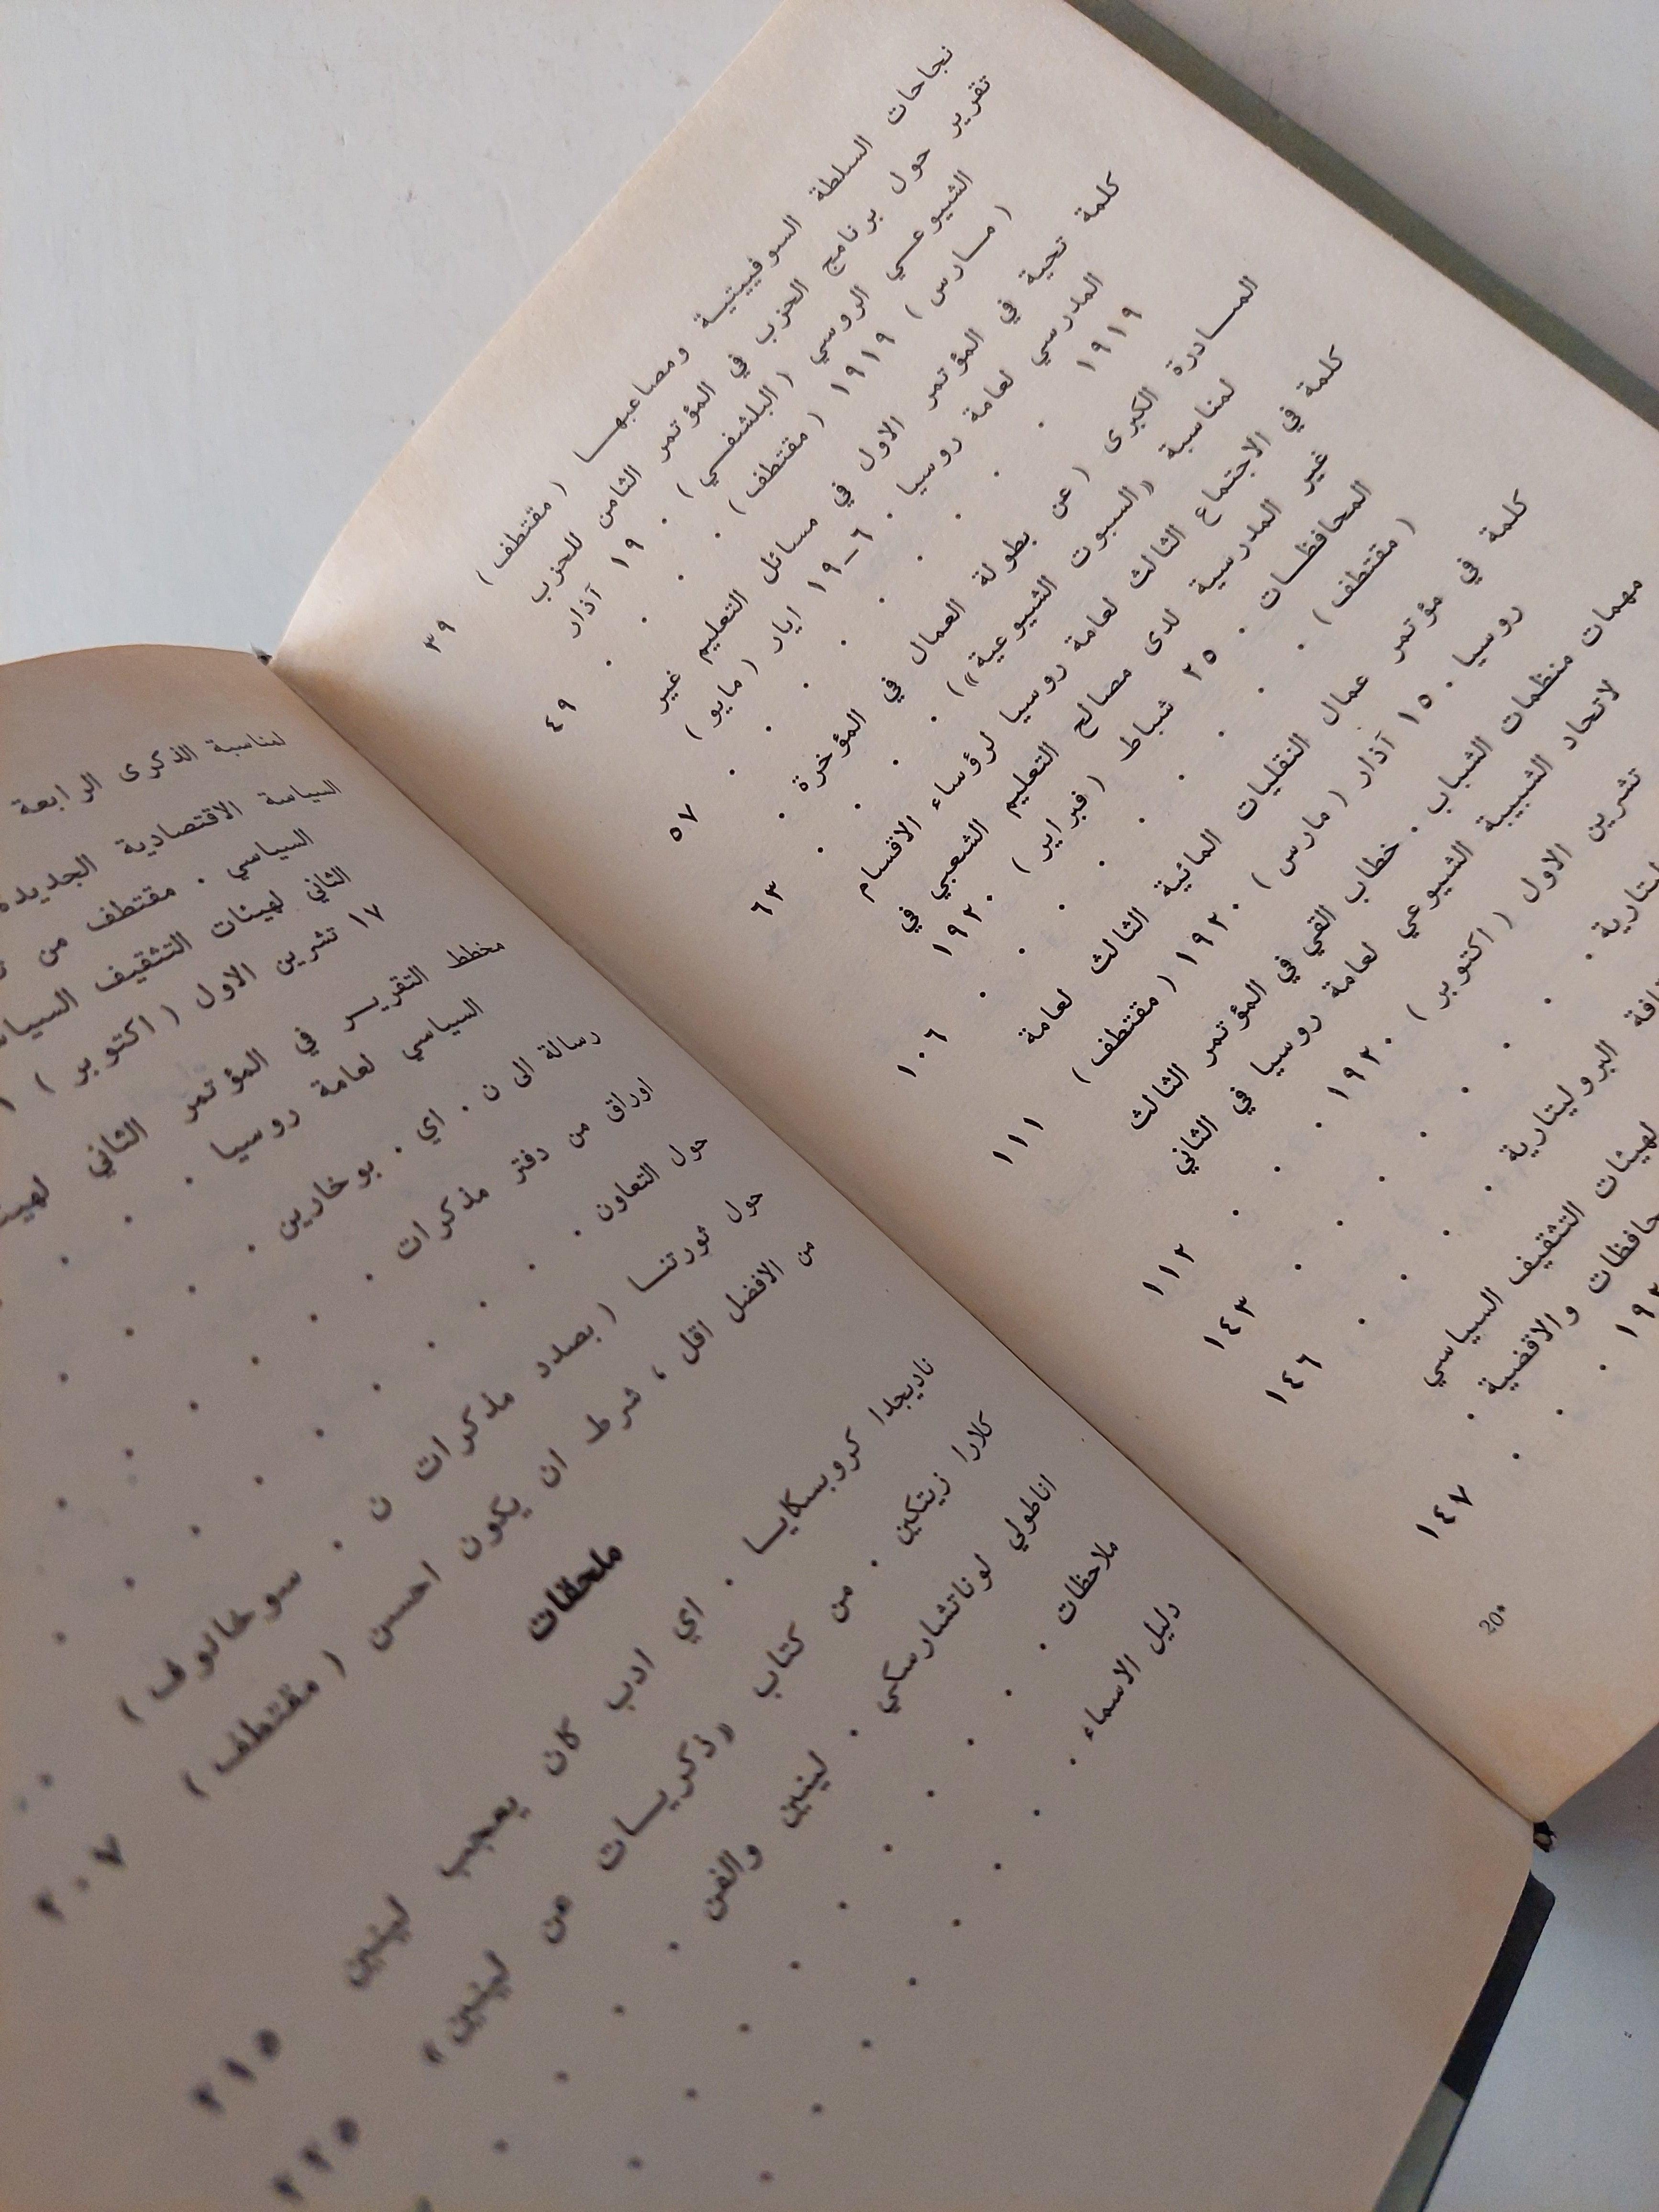 نجاحات السلطة السوفييتية ومصاعبها (مقتطف) ٣٩
تقرير حول برنامج الحزب في المؤتمر الثامن للحزب
الشيوعي الروسي (البلشفي) . ١٩ آذار
(مارس) ١٩١٩ (مقتطف) . . . . ٤٩
كلمة تحية في المؤتمر الاول في مسائل التعليم غير
المدرسي لعامة روسيا . ٦-١٩ ايار (مايو)
١٩١٩ . . . . . . . . . ٥٧
المبادرة الكبرى (عن بطولة العمال في المؤخرة .
لمناسبة «السبوت الشيوعية») . . . . ٦٣
كلمة في الاجتماع الثالث لعامة روسيا لرؤساء الاقسام
غير المدرسية لدى مصالح التعليم الشعبي في
المحافظات . ٢٥ شباط (فبراير) ١٩٢٠
(مقتطف) . . . . . . . . . ١٠٦
كلمة في مؤتمر عمال النقليات المائية الثالث لعامة
روسيا . ١٥ آذار (مارس) ١٩٢٠ (مقتطف) ١١١
مهمات منظمات الشباب . خطاب القي في المؤتمر الثالث
لاتحاد الشبيبة الشيوعي لعامة روسيا في الثاني
تشرين الاول (اكتوبر) ١٩٢٠ . . . ١١٢
ليتارية . . . . . . ١٤٣
البروليتارية . . . . . ١٤٦
لهيئات التثقيف السياسي
والاقضية .
. . . ١٤٧
20*
لمناسبة الذكرى الرابعة
السياسة الاقتصادية الجديدة
السياسي . مقتطف من
الثاني لهيئات التثقيف
١٧ تشرين الاول (اكتوبر)
مخطط التقرير في المؤتمر الثاني
السياسي لعامة روسيا . . .
رسالة الى ن . اي . بوخارين . . . .
اوراق من دفتر مذكرات . . . . .
حول التعاون . . . . . . . .
حول ثورتنا (بصدد مذكرات ن . سوخانوف) . .
من الافضل اقل ، شرط ان يكون احسن (مقتطف) ٢٠٧
ملحقات
ناديجدا كروبسكايا . اي ادب كان يعجب لينين ٢١٥
كلارا زيتكين . من كتاب «ذكريات من لينين» ٢٢٥
اناطولي لوناتشارسكي . لينين والفن . . . .
ملاحظات . . . . . . . . .
دليل الاسماء . . . . . . . .